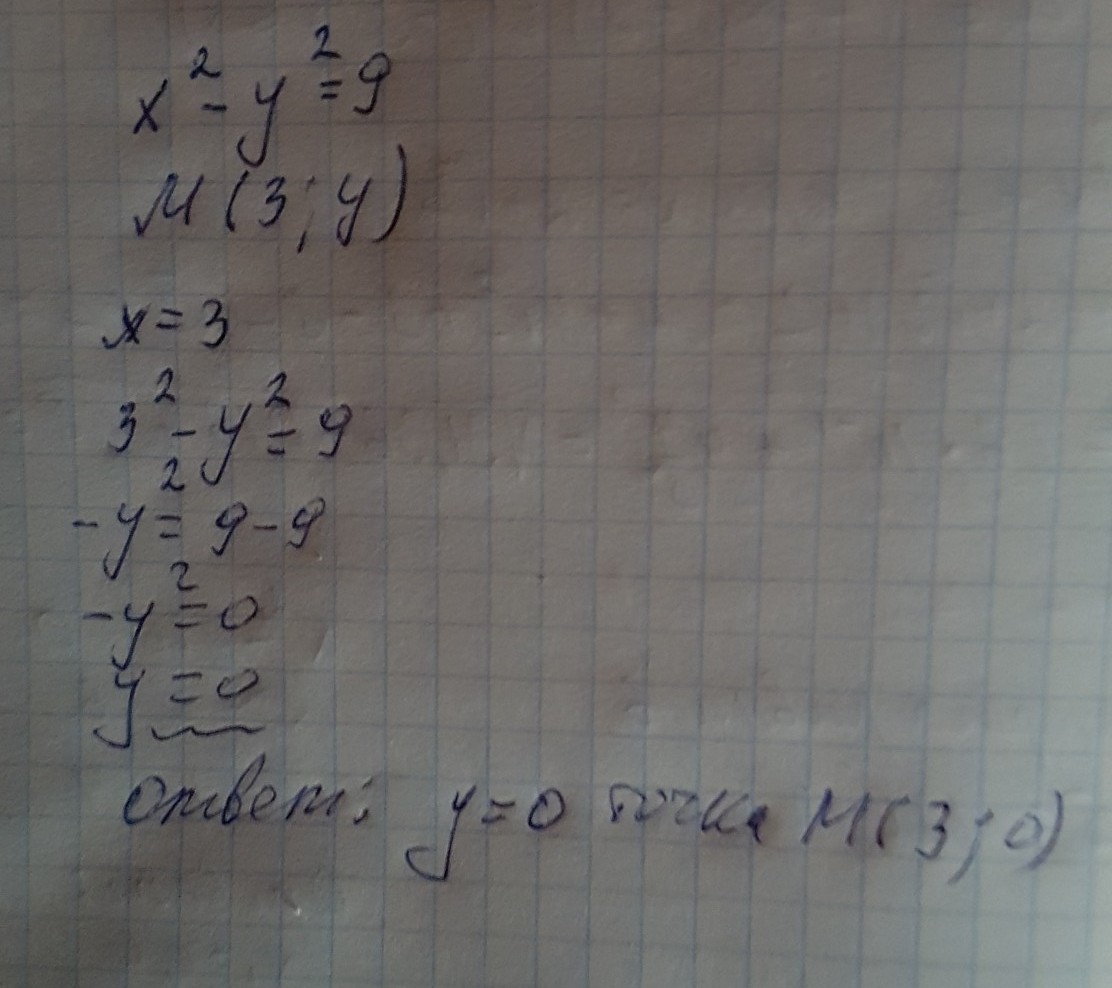 x² - y² = 9
М(3; y)
x = 3
3² - y² = 9
-y² = 9 - 9
-y² = 0
y = 0
Ответ: y = 0 точка М(3; 0)